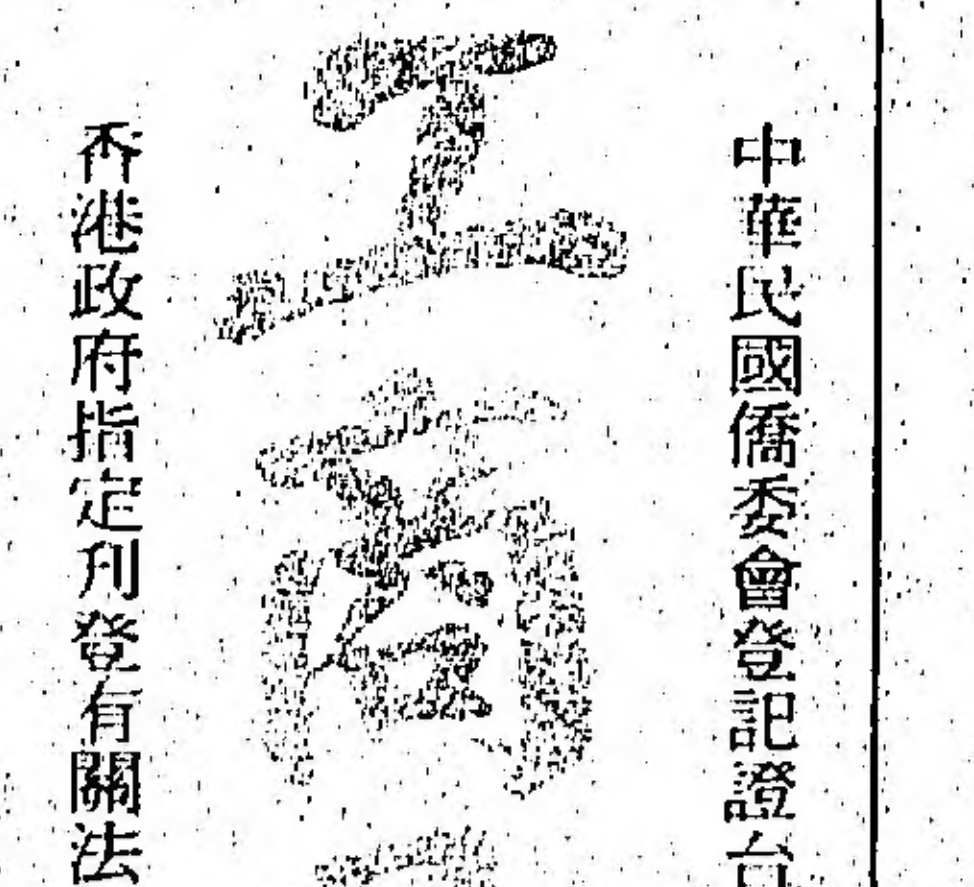 中華民國僑委會登記證台
工商
香港政府指定刊登有關法